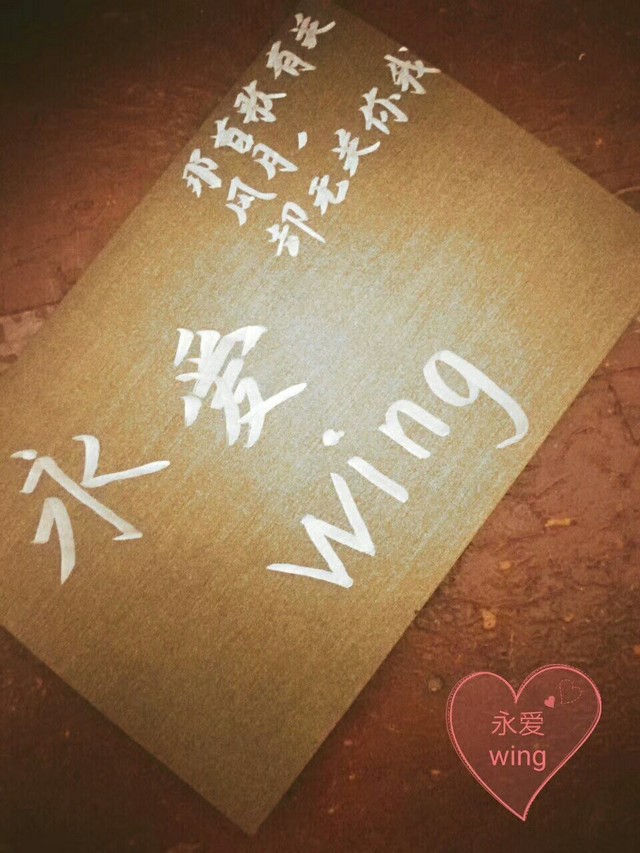 那首歌有关
风月，
都无关你我
永爱
wing
永爱
wing